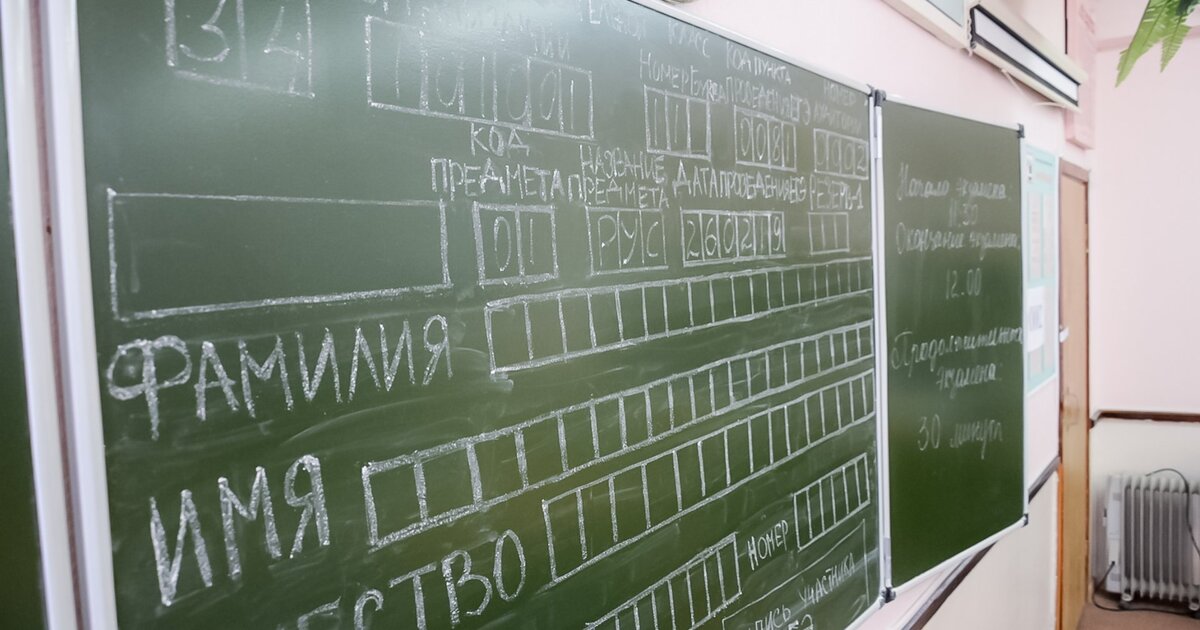 34
КЛАСС КОД ПУНКТА
НОМЕР БУКВА ПРОВЕДЕНИЯ ЕГЭ НОМЕР
11 0081 0002
КОД
ПРЕДМЕТА НАЗВАНИЕ ПРЕДМЕТА ДАТА ПРОВЕДЕНИЯ ЕГЭ РЕЗЕРВ-1
01 РУС 260219
ФАМИЛИЯ
ИМЯ
СТВО
НОМЕР
УЧАСТНИКА
Начало экзамена:
11:30
Окончание экзамена:
12.00
экзамена:
30 минут